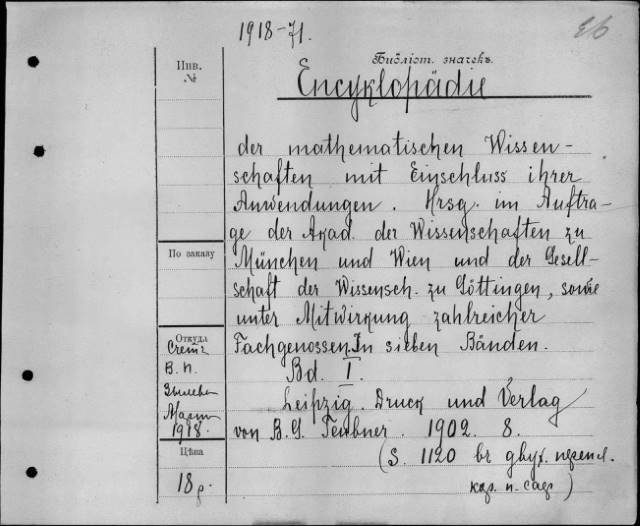 1918-71.
Библіот. значекъ.
Инв.
№
Encyklopädie
der mathematischen Wissen-
schaften mit Einschluss ihrer
Anwendungen. Hrsg. im Auftra-
ge der Akad. der Wissenschaften zu
По заказу
München und Wien und der Gesell-
schaft der Wissensch. zu Göttingen, sowie
unter Mitwirkung zahlreicher
Откуда
Fachgenossen. In sieben Bänden.
В. П.
Bd. I.
Март
1918.
Leipzig. Druck und Verlag
von B. G. Teubner. 1902. 8.
Цѣна
18 р.
(S. 1120 в двух перепл.
)